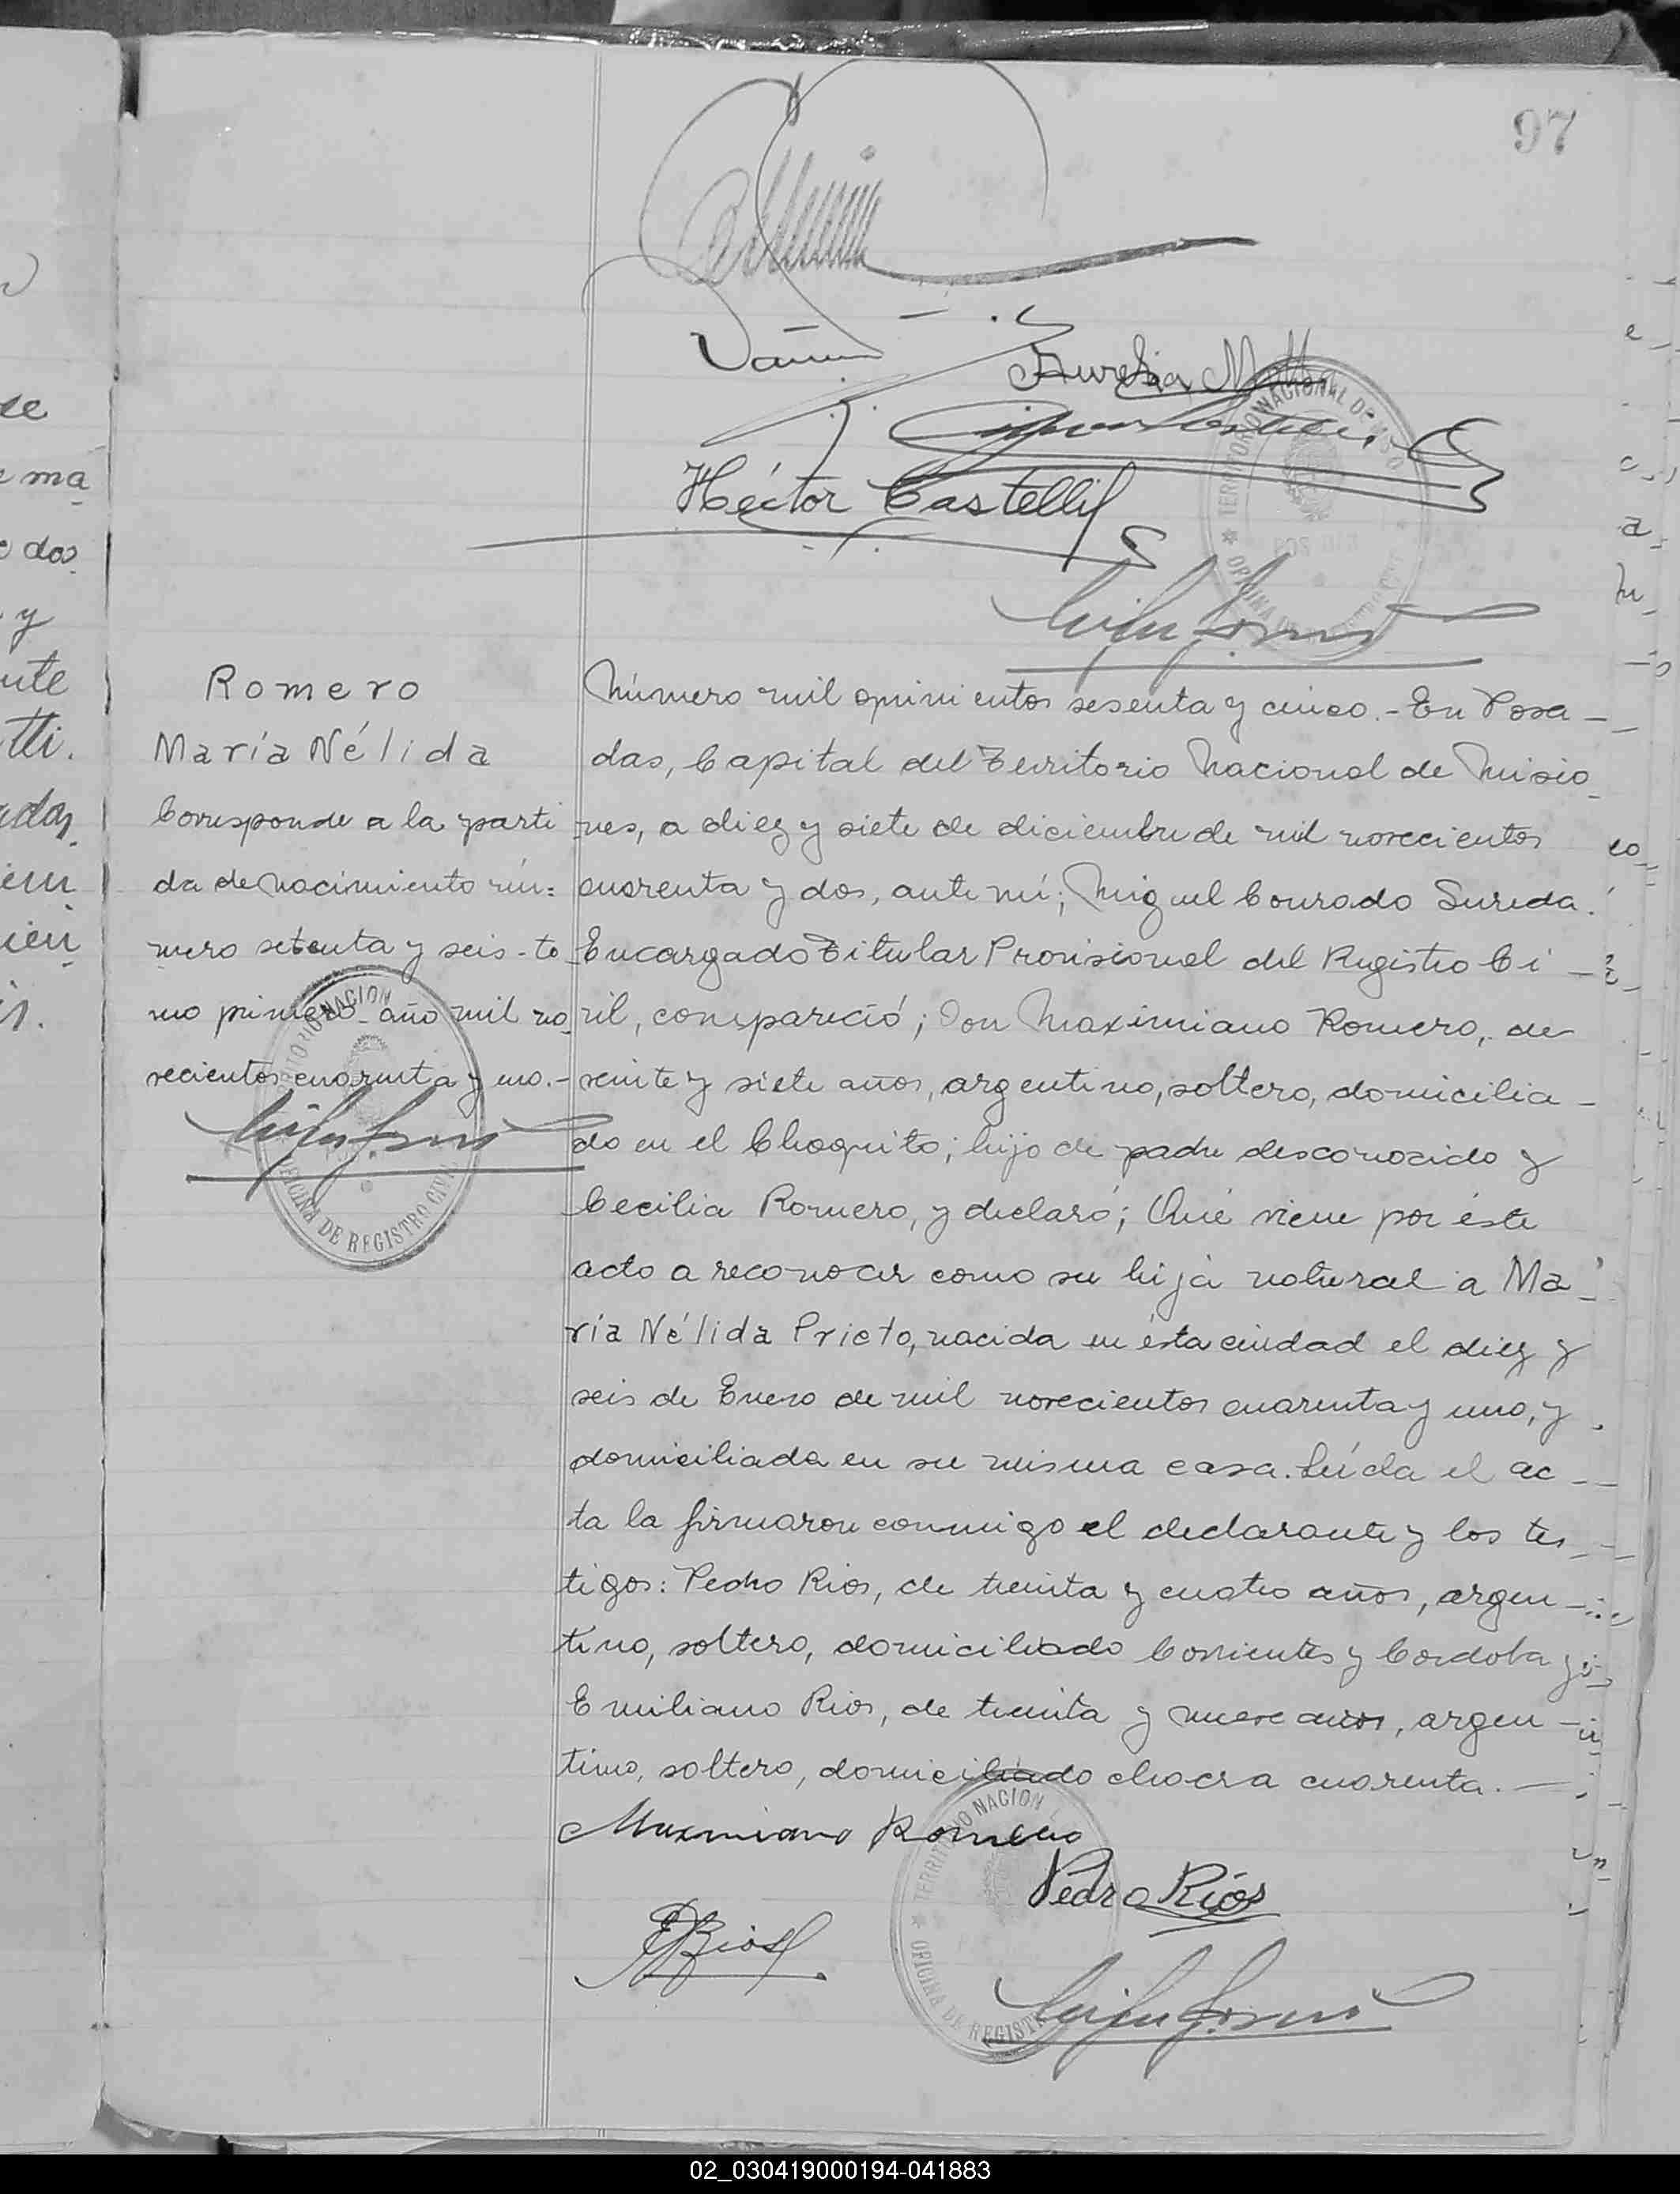 97
Aurelia
Héctor Castelli
TERRITORIO NACIONAL DE
OFICINA DE
Romero
María Nélida
Corresponde a la parti
da de nacimiento nú=
mero setenta y seis - to
mo primero - año mil no
vecientos cuarenta y uno.-
OFICINA DE REGISTRO CIVIL
Número mil quinientos sesenta y cinco.- En Posa-
das, Capital del Territorio Nacional de Misio_
nes, a diez y siete de diciembre de mil novecientos
cuarenta y dos, ante mí; Miguel Conrado Sureda.
Encargado Titular Provisional del Registro Ci-
vil, compareció; Don Maximiano Romero, de
veinte y siete años, argentino, soltero, domicilia-
do en el Chaquito; hijo de padre desconocido y
Cecilia Romero, y declaró; Qué viene por éste
acto a reconocer como su hija natural a Ma_
ría Nélida Prieto, nacida en ésta ciudad el diez y
seis de Enero de mil novecientos cuarenta y uno, y
domiciliada en su misma casa. Leída el ac-
ta la firmaron conmigo el declarante y los tes_
tigos: Pedro Rios, de treinta y cuatro años, argen-
tino, soltero, domiciliado Corrientes y Cordoba y
Emiliano Rios, de treinta y nueve años, argen-
tino, soltero, domiciliado chacra cuarenta.-
Maximiano Romero
Pedro Ríos
E Rios
TERRITORIO NACIONAL
OFICINA DE REGISTRO
02_030419000194-041883